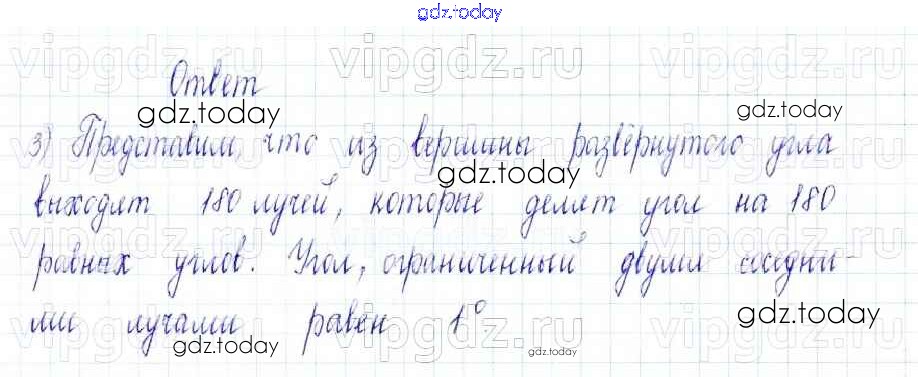 gdz.today
vipgdz.ru vipgdz.ru vipgdz.ru
Ответ
gdz.today
gdz.today
3) Представим, что из вершины развёрнутого угла
gdz.today
выходят 180 лучей, которые делят угол на 180
равных углов. Угол, ограниченный двумя соседни-
gdz.today
ми лучами равен 1°
gdz.today
gdz.today